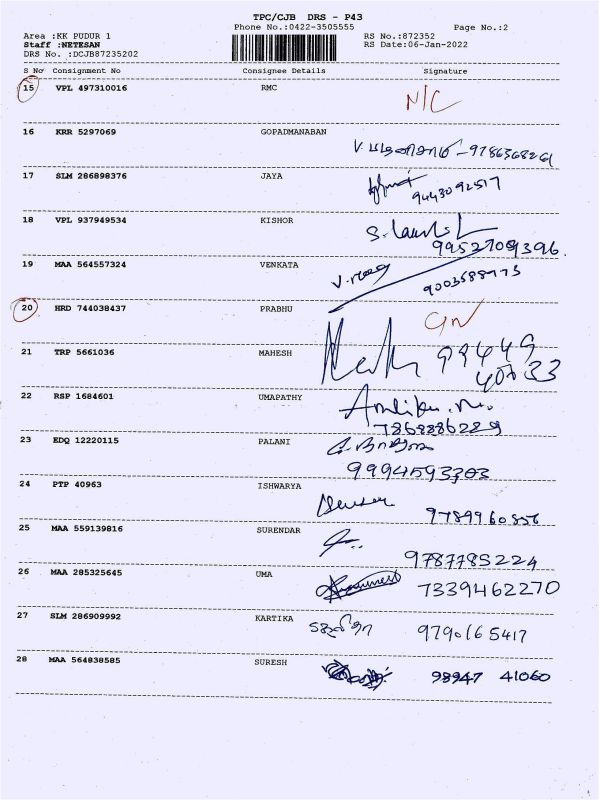 TPC/CJB DRS - P43
Phone No.:0422-3505555 Page No.:2
Area :KK PUDUR 1 RS No.:872352
Staff :NETESAN RS Date:06-Jan-2022
DRS No. :DCJB87235202
S No Consignment No Consignee Details Signature
15 VPL 497310016 RMC N/C
16 KRR 5297069 GOPADMANABAN
17 SLM 286898376 JAYA 9443092517
18 VPL 937949534 KISHOR 9952709396.
19 MAA 564557324 VENKATA 9003588975
20 HRD 744038437 PRABHU
21 TRP 5661036 MAHESH 99449
22 RSP 1684601 UMAPATHY
7868886229
23 EDQ 12220115 PALANI
9994593303
24 PTP 40963 ISHWARYA 9789960856
25 MAA 559139816 SURENDAR
9787785224
26 MAA 285325645 UMA 7339462270
27 SLM 286909992 KARTIKA 9790165417
28 MAA 564838585 SURESH 98947 41060